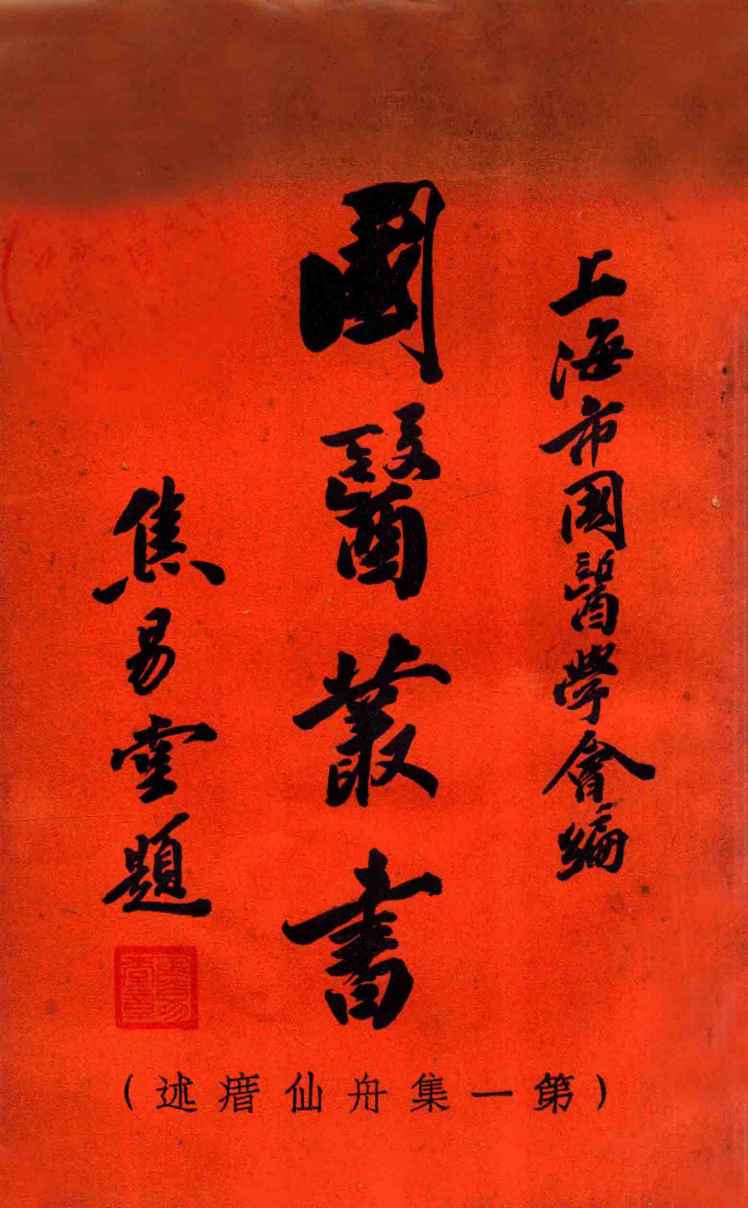 上海市國醫學會編
國醫叢書
焦易堂題
(第一集舟仙瘄述)